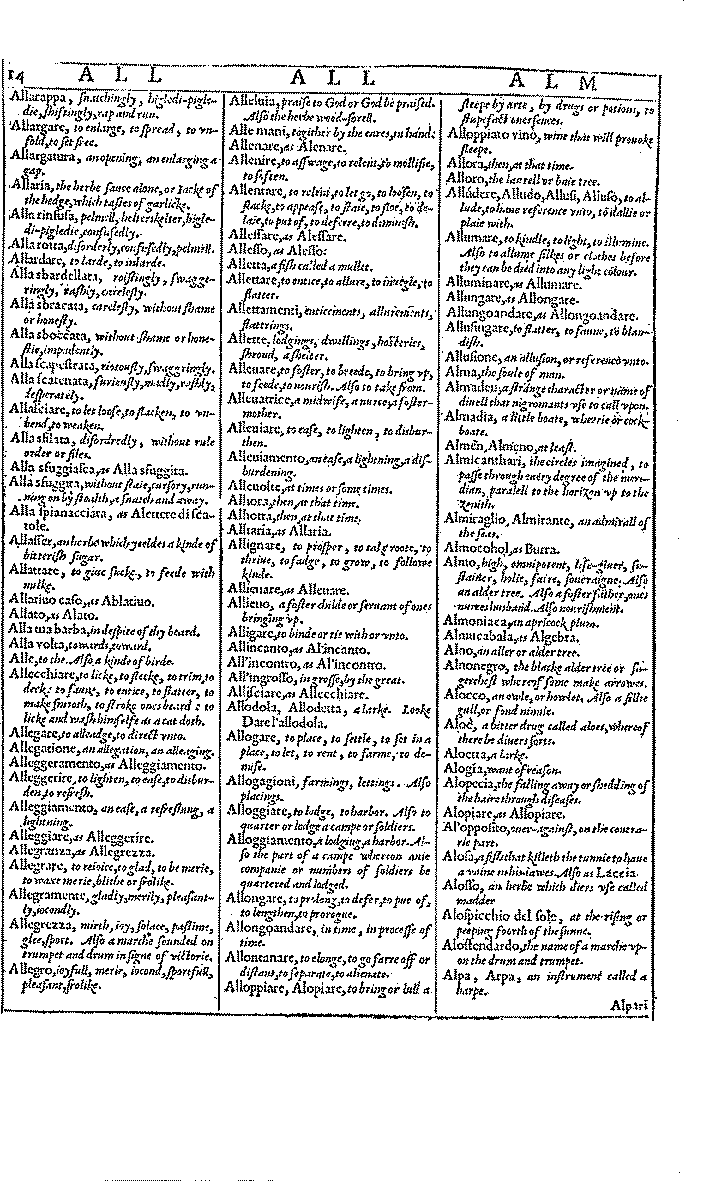 14 A L L A L L A L M
Allarappa, snatchingly, higledi-pigle-
die, shiftingly, rap and run.
Allargare, to enlarge, to spread, to vn-
fold, to set free.
Allargatura, an opening, an enlarging a
gap.
Allaria, the herbe sauce alone, or Iacke of
the hedge, which tastes of garlicke.
Alla rinfusa, pelmell, helterskelter, higle-
di-pigledie, confusedly.
Alla rotta, disorderly, confusedly, pelmell.
Allardare, to larde, to inlarde.
Alla sbardellata, roistingly, swagge-
ringly, rashly, carelesly.
Alla sbracata, carelesly, without shame
or honesty.
Alla sboccata, without shame or hone-
stie, impudently.
Alla scapestrata, riotously, swaggringly.
Alla scatenata, furiously, madly, rashly,
desperately.
Allasciare, to let loose, to slacken, to vn-
bend, to weaken.
Alla sfilata, disordredly, without rule
order or files.
Alla sfuggiasca, as Alla sfuggita.
Alla sfuggita, without staie, cursory, run-
ning on by stealth, a snatch and away.
Alla spianacciata, as Alettere di sca-
tole.
Allasser, an herbe which yeeldes a kinde of
bitterish sugar.
Allattare, to giue sucke, to feede with
milke.
Allatiuo caso, as Ablatiuo.
Allato, as Alato.
Alla tua barba, in despite of thy beard.
Alla volta, towards, toward.
Alle, to the. Also a kinde of birde.
Allecchiare, to licke, to slecke, to trim, to
decke to faune, to entice, to flatter, to
make smooth, to stroke ones beard to
licke and wash himselfe as a cat doth.
Allegare, to alleadge, to direct vnto.
Allegatione, an allegation, an alleaging.
Alleggeramento, as Alleggiamento.
Alleggerire, to lighten, to ease, to disbur-
den, to refresh.
Alleggiamento, an ease, a refreshing, a
lightning.
Alleggiare, as Alleggerire.
Allegranza, as Allegrezza.
Allegrare, to reioice, to glad, to be merie,
to waxe merie, blithe or frolike.
Allegramente, gladly, merily, pleasant-
ly, iocondly.
Allegrezza, mirth, ioy, solace, pastime,
glee, sport. Also a marche sounded on
trumpet and drum in signe of victorie.
Allegro, ioyfull, merie, iocond, sportfull,
pleasant, frolike.
Alleluia, praise to God or God be praised.
Also the herbe wood-sorell.
Alle mani, together by the eares, in hand.
Allenare, as Alenare.
Allenire, to asswage, to relent, to mollifie,
to soften.
Allentare, to relent, to let go, to loosen, to
slacke, to appease, to staie, to stoe, to de-
laie, to put of, to deferre, to diminish.
Allessare, as Alessare.
Allesso, as Alesso.
Alletta, a fish called a mullet.
Allettare, to entice, to allure, to inueigle, to
flatter.
Allettamenti, enticements, allurements,
flattrings.
Allette, lodgings, dwellings, hosteries,
shroud, a shelter.
Alleuare, to foster, to breede, to bring vp,
to feede, to nourish. Also to take from.
Alleuatrice, a midwife, a nurce, a foster-
mother.
Alleuiare, to ease, to lighten, to disbur-
then.
Alleuiamento, an ease, a lightning, a dis-
burdening.
Alleuolte, at times or some times.
Allhora, then, at that time.
Allhotta, then, at that time.
Alliaria, as Allaria.
Allignare, to prosper, to take roote, to
thriue, to fadge, to grow, to followe
kinde.
Allieuare, as Alleuare.
Allieuo, a foster childe or seruant of ones
bringing vp.
Alligare, to binde or tie with or vnto.
All'incanto, as Al'incanto.
All'incontro, as Al'incontro.
All'ingrosso, in grosse, by the great.
Allisciare, as Allecchiare.
Allodola, Allodetta, a larke. Looke
Dare l'allodola.
Allogare, to place, to settle, to set in a
place, to let, to rent, to farme, to de-
mise.
Allogagioni, farmings, lettings. Also
placings.
Alloggiare, to lodge, to harbor. Also to
quarter or lodge a campe or soldiers.
Alloggiamento, a lodging, a harbor. Al-
so the part of a campe whereon anie
companie or numbers of soldiers be
quartered and lodged.
Allongare, to prolong, to defer, to put of,
to lengthen, to prorogue.
Allongoandare, in time, in processe of
time.
Allontanare, to elonge, to go farre off or
distant, to separate, to alienate.
Alloppiare, Alopiare, to bring or lull a
sleepe by arte, by drugs or potions, to
stupefact ones sences.
Alloppiato vino, wine that will prouoke
sleepe.
Allora, then, at that time.
Alloro, the laurell or baie tree.
Alludere, Alludo, Allusi, Alluso, to al-
lude, to haue reference vnto, to dallie or
plaie with.
Allumare, to kindle, to light, to illumine.
Also to allume silkes or clothes before
they can be died into any light colour.
Alluminare, as Allumare.
Allungare, as Allongare.
Allungoandare, as Allongoandare.
Allusingare, to flatter, to faune, to blan-
dish.
Allusione, an allusion, or reference vnto.
Alma, the soule of man.
Almadel, a strange character or name of
diuell that nigromants vse to call vpon.
Almadia, a little boate, wherrie or cock-
boate.
Almen, Almeno, at least.
Almicanthari, the circles imagined, to
passe through euery degree of the meri-
dian, paralell to the horizon vp to the
zenith.
Almiraglio, Almirante, an admirall of
the seas.
Almocohol, as Burra.
Almo, high, omnipotent, life-giuer, su-
stainer, holie, faire, soueraigne. Also
an alder tree. Also a foster father, ones
nurces husband. Also nourishment.
Almoniaca, an apricock plum.
Almucabala, as Algebra.
Alno, an aller or alder tree.
Alnonegro, the blacke alder tree or
whereof some make arrowes.
Alocco, an owle, or howlet. Also a sillie
gull, or fond ninnie.
Aloè, a bitter drug called aloes, whereof
there be diuers sorts.
Aloetta, a larke.
Alogia, want of reason.
Alopecia, the falling away or shedding of
the haire through diseases.
Alopiare, as Allopiare.
Al'opposito, ouer-against, on the contra-
rie part.
Alosa, a fish that killeth the tunnie to haue
a vaine in his iawes. Also as Laccia.
Alosso, an herbe which diers vse called
madder
Alospicchio del sole, at the rising or
peeping fourth of the sunne.
Alostendardo, the name of a marche vp-
on the drum and trumpet.
Alpa, Arpa, an instrument called a
harpe.
Alpari